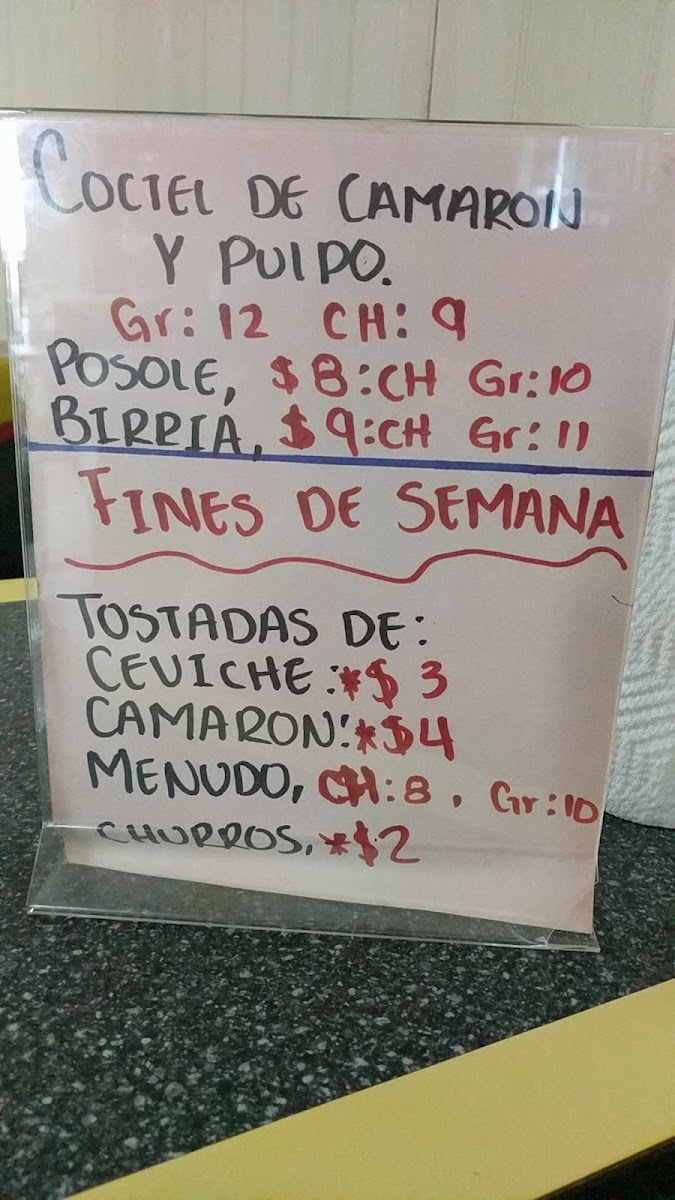 COCTEL DE CAMARON
Y PULPO.
Gr: 12 CH: 9
POSOLE, $8:CH Gr:10
BIRRIA, $9:CH Gr: 11
FINES DE SEMANA
TOSTADAS DE:
CEVICHE:*$ 3
CAMARON:*$4
MENUDO, CH:8, Gr:10
CHURROS, *$2